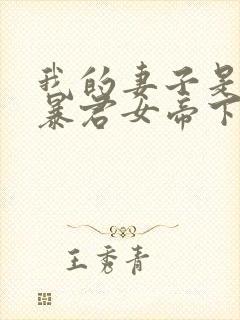 我的妻子是
暴君女帝下
王秀青